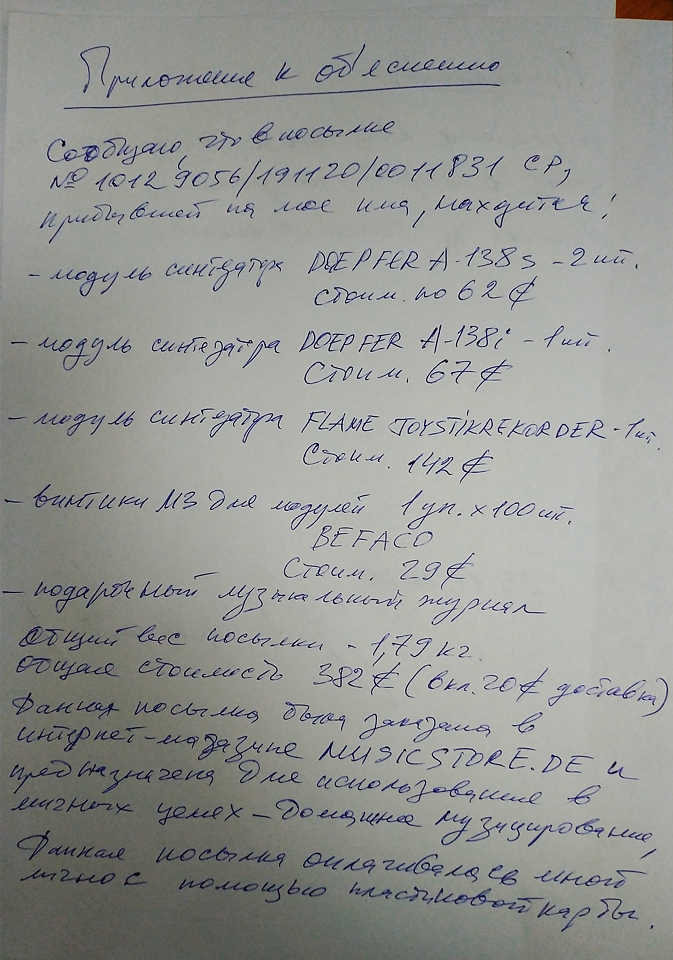 Приложение к объяснению
Сообщаю, что в посылке
№ 10129056/191120/0011831 СР,
прибывшей на мое имя, находится:
- модуль синтезатора DOEPFER A-138s - 2 шт.
стоим. по 62 €
- модуль синтезатора DOEPFER A-138i - 1 шт.
Стоим. 67 €
- модуль синтезатора FLAME JOYSTIKREKORDER - 1 шт.
Стоим. 142 €
- винтики М3 для модулей 1 уп. х 100 шт.
BEFACO
Стоим. 29 €
- подарочный музыкальный журнал
Общий вес посылки - 1,79 кг.
общая стоимость 382 € (вкл. 20 € доставка)
Данная посылка была заказана в
интернет-магазине MUSICSTORE.DE и
предназначена для использования в
личных целях - домашнее музицирование,
Данная посылка оплачивалась мной
лично с помощью пластиковой карты.